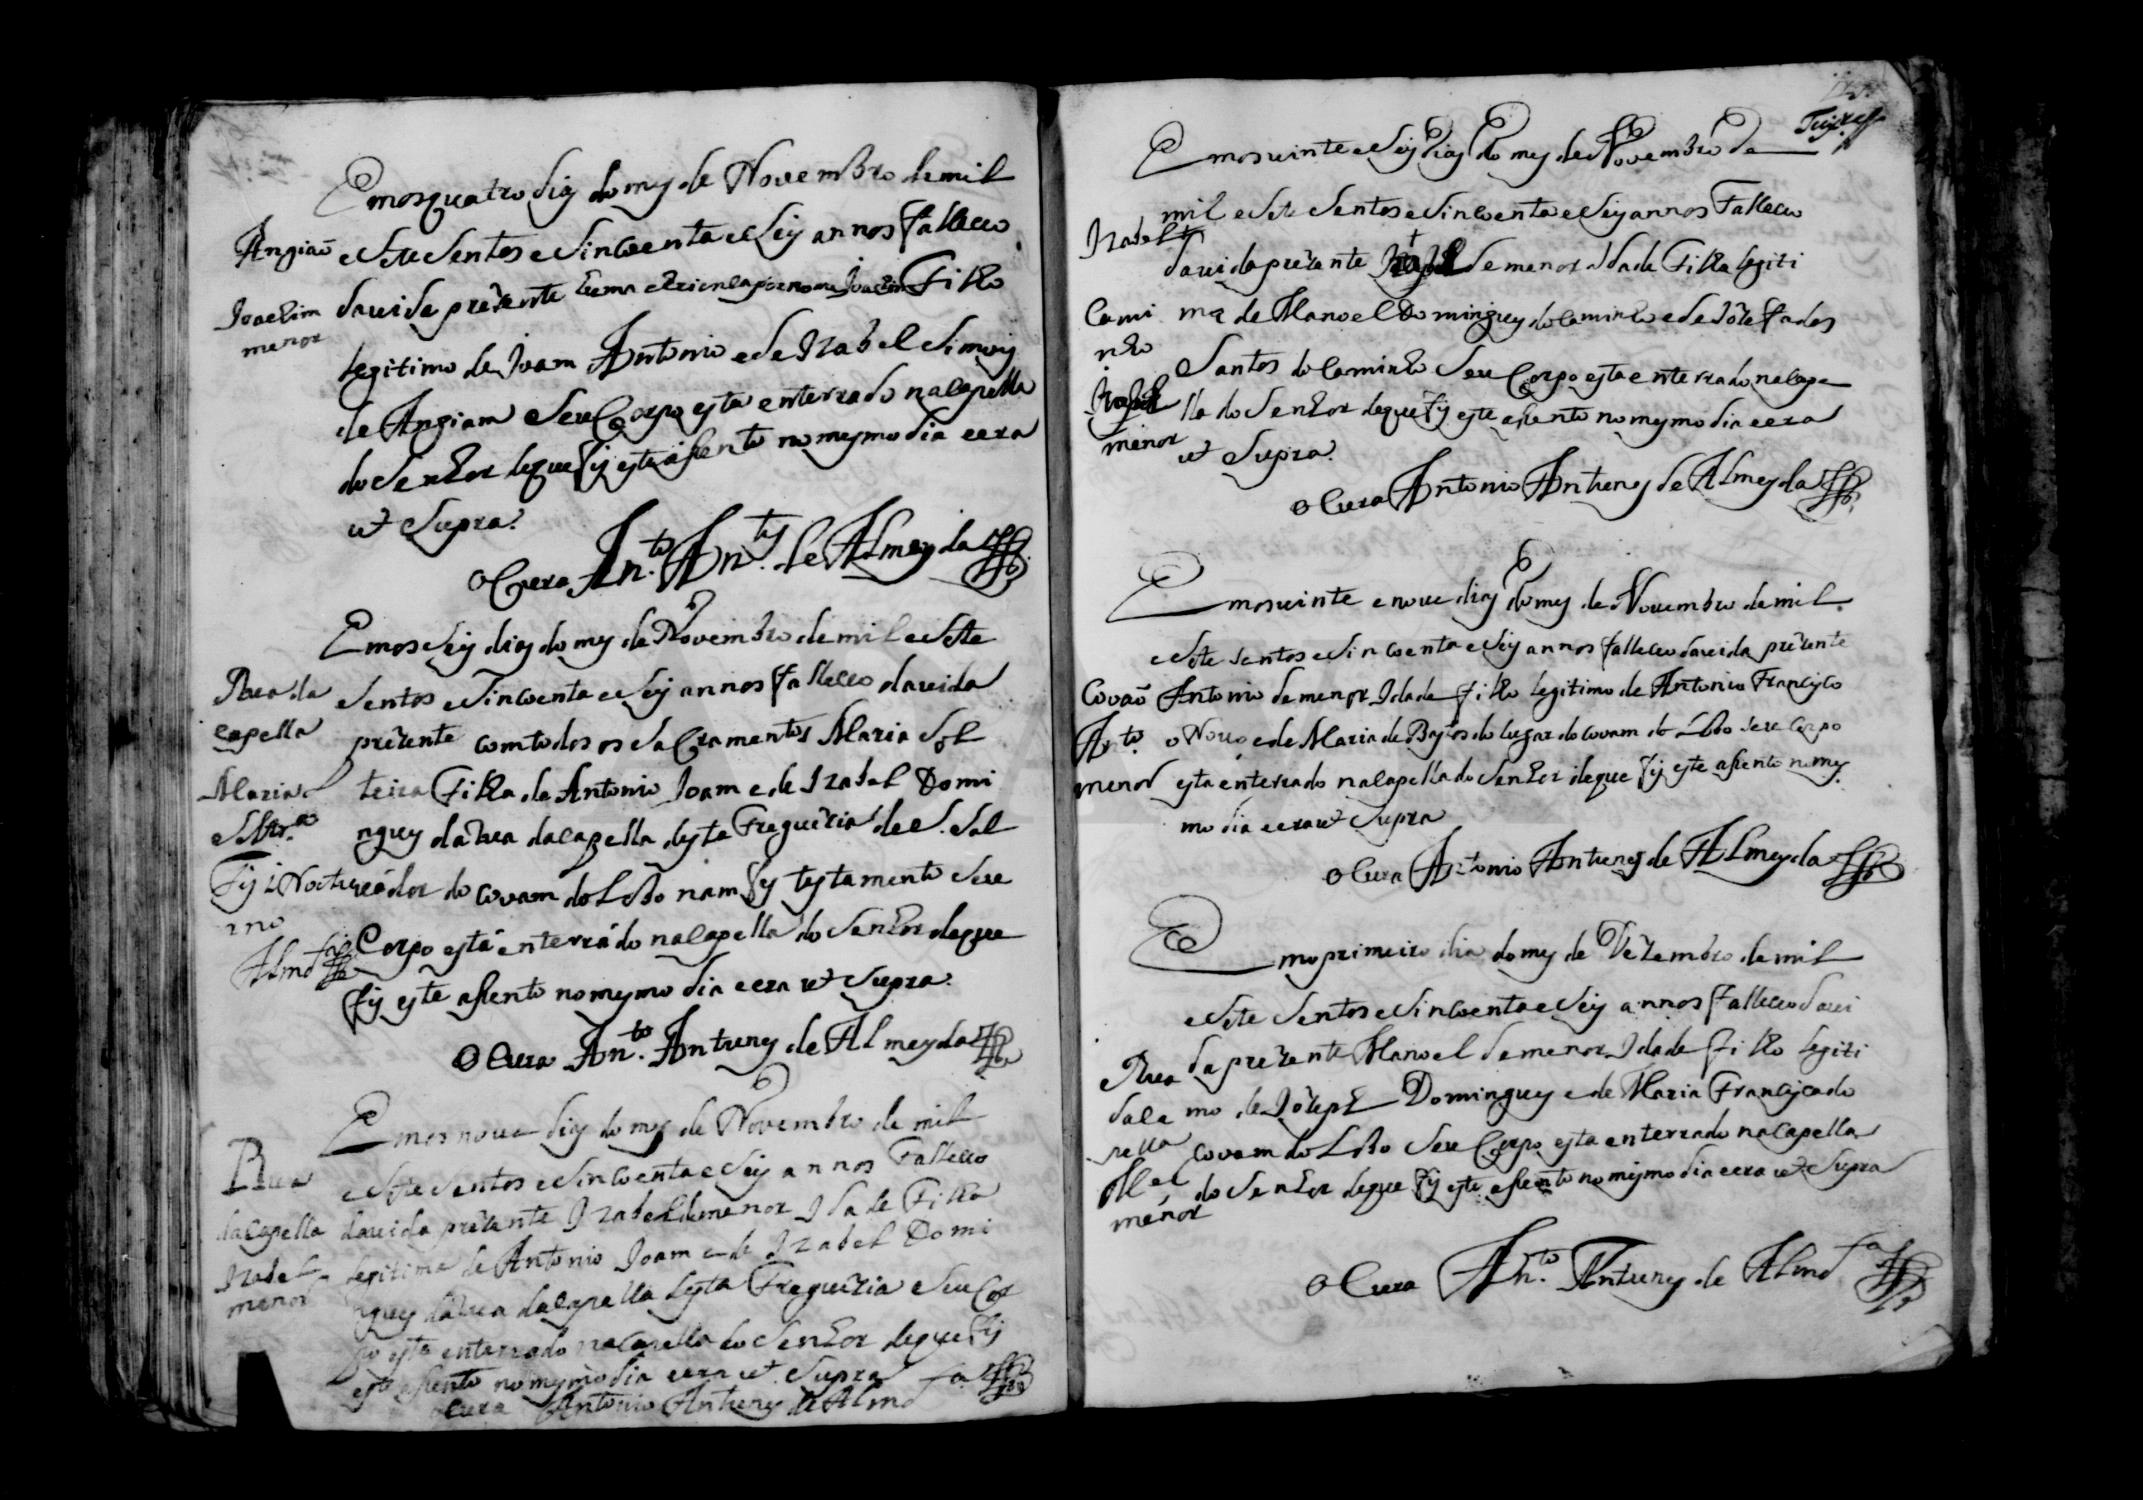 Emos quatro dias do mes de Novembro de mil
Angiaõ
e Sete Sentos e Sincoenta e Seis annos Falleceo
Joachim
menor
da vida prezente huma crianca por nome Joachim Filho
legitimo de Joam Antonio e de Izabel Simois
de Angiam Seu Corpo esta enterrado na Capella
do Senhor de que fis este asento no mesmo dia e era
ut Supra.
O Cura An.to An.tes de Almeyda
Emos Seis dias do mes de Novembro de mil e Sete
Rua da
capella
Sentos e Sincoenta e Seis annos Falleceo da vida
prezente com todos os Sacramentos Maria Sol
Maria
Soltr.a
teira Filha de Antonio Joam e de Izabel Domi
ngues da Rua da Capella desta Freguezia de S. Sal
Fis 1 Noctu
rno
Almd.a
vador do covam do Lobo nam fes testamento Seu
Corpo está enterrádo na Capella do Senhor de que
fis este asento no mesmo dia e era ut Supra.
O Cura An.to Antunes de Almeyda
Emos nove dias do mes de Novembro de mil
Rua
da Capella
Izabel
menor
e Sete Sentos e Sincoenta e Seis annos Falleceo
da vida prezente Izabel de menor Idade Filha
legitima de Antonio Joam e de Izabel Domi
ngues da Rua da Capella desta Freguezia e Seu Cor
po esta enterrado na Capella do Senhor de que fis
este asento no mesmo dia e era ut Supra
O Cura Antonio Antunes de Almd.a
Emos vinte e Seis dias do mes de Novembro de
mil e Sete Sentos e Sincoenta e Seis annos Falleceo
Izabel
da vida prezente de menor Idade Filha legiti
Cami
nho
ma de Manoel Domingues do Caminho e de Jozefa dos
Santos do Caminho Seu Corpo esta enterrado na Cape
menor
lla do Senhor de que fis este asento no mesmo dia e era
ut Supra.
O Cura Antonio Antunes de Almeyda
Emos vinte e nove dias do mes de Novembro de mil
e Sete Sentos e Sincoenta e Seis annos falleceo da vida prezente
Covaõ
Ant.o
menor
Antonio de menor Idade filho legitimo de Antonio Francisco
o Novo e de Maria de Bastos do lugar do covam do Lobo Seu Corpo
esta enterrado na Capella do Senhor de que fis este asento no mes
mo dia e era ut Supra
O Cura Antonio Antunes de Almeyda
Emo primeiro dia do mes de Dezembro de mil
e Sete Sentos e Sincoenta e Seis annos Falleceo da vi
Rua
da Ca
pella
M.el
menor
da prezente Manoel de menor Idade filho legiti
mo de Jozeph Domingues e de Maria Francisca do
covam do Lobo Seu Corpo esta enterrado na Capella
do Senhor de que fis este asento no mesmo dia e era ut Supra
O Cura An.to Antunes de Almd.a